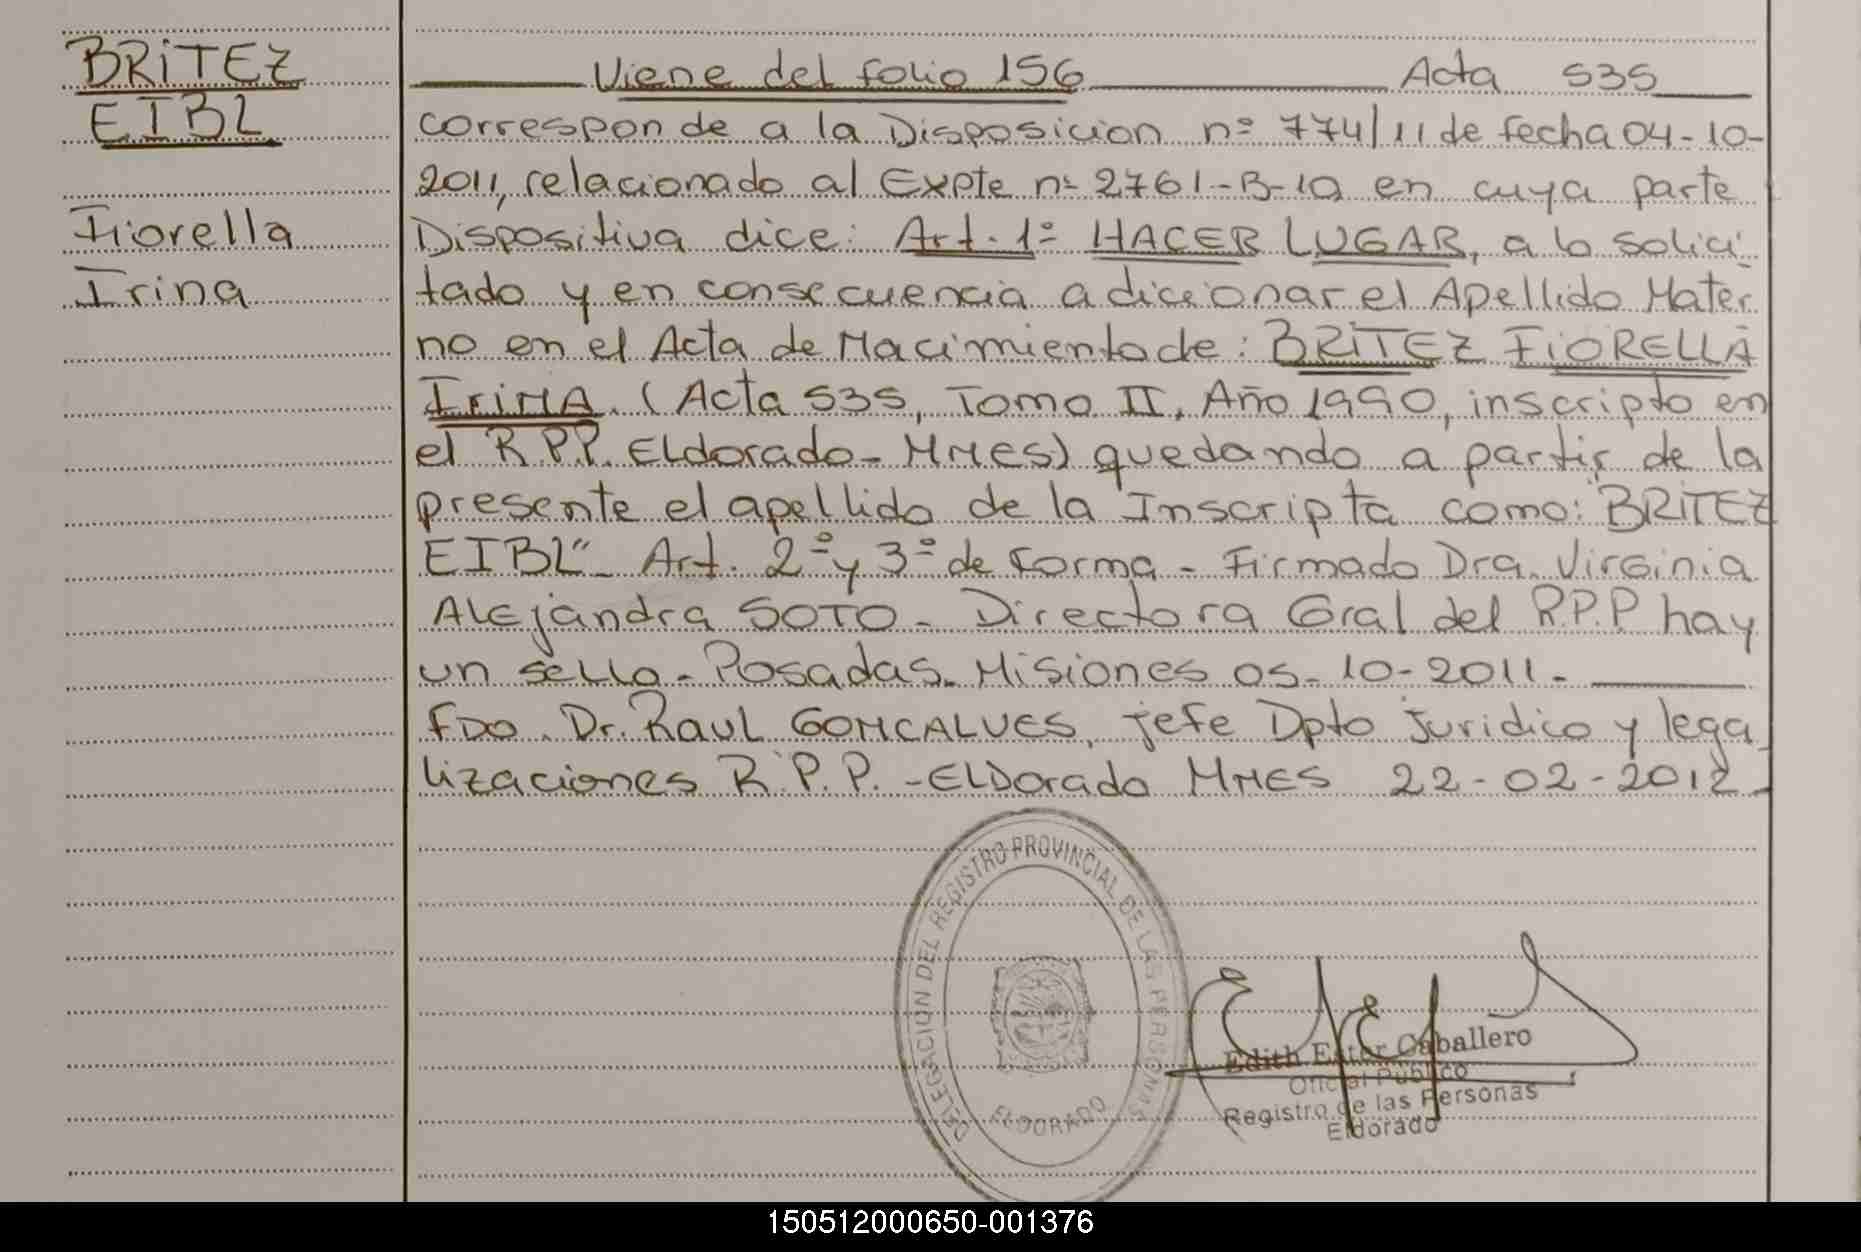 BRITEZ
EIBL
Fiorella
Irina
Viene del folio 156 Acta 535
corresponde a la Disposicion nº 774/11 de fecha 04-10-
2011, relacionado al Expte nº 2761-B-10 en cuya parte
Dispositiva dice: Art. 1º HACER LUGAR, a lo solici-
tado y en consecuencia adicionar el Apellido Mater
no en el Acta de Nacimiento de: BRITEZ FIORELLA
IRINA. (Acta 535, Tomo II, Año 1990, inscripto en
el R.P.P. Eldorado - MNES) quedando a partir de la
presente el apellido de la Inscripta como: "BRITEZ
EIBL" - Art. 2º y 3º de forma - Firmado Dra. Virginia
Alejandra SOTO - Directora Gral del R.P.P hay
un sello - Posadas. Misiones 05-10-2011.-
FDO. Dr. Raul GONCALVES, jefe Dpto juridico y lega
lizaciones R.P.P. - ELDorado MNES 22-02-2012-
DELEGACION DEL REGISTRO PROVINCIAL DE LAS PERSONAS
ELDORADO
Edith Ester Caballero
Oficial Publico
Registro de las Personas
Eldorado
150512000650-001376